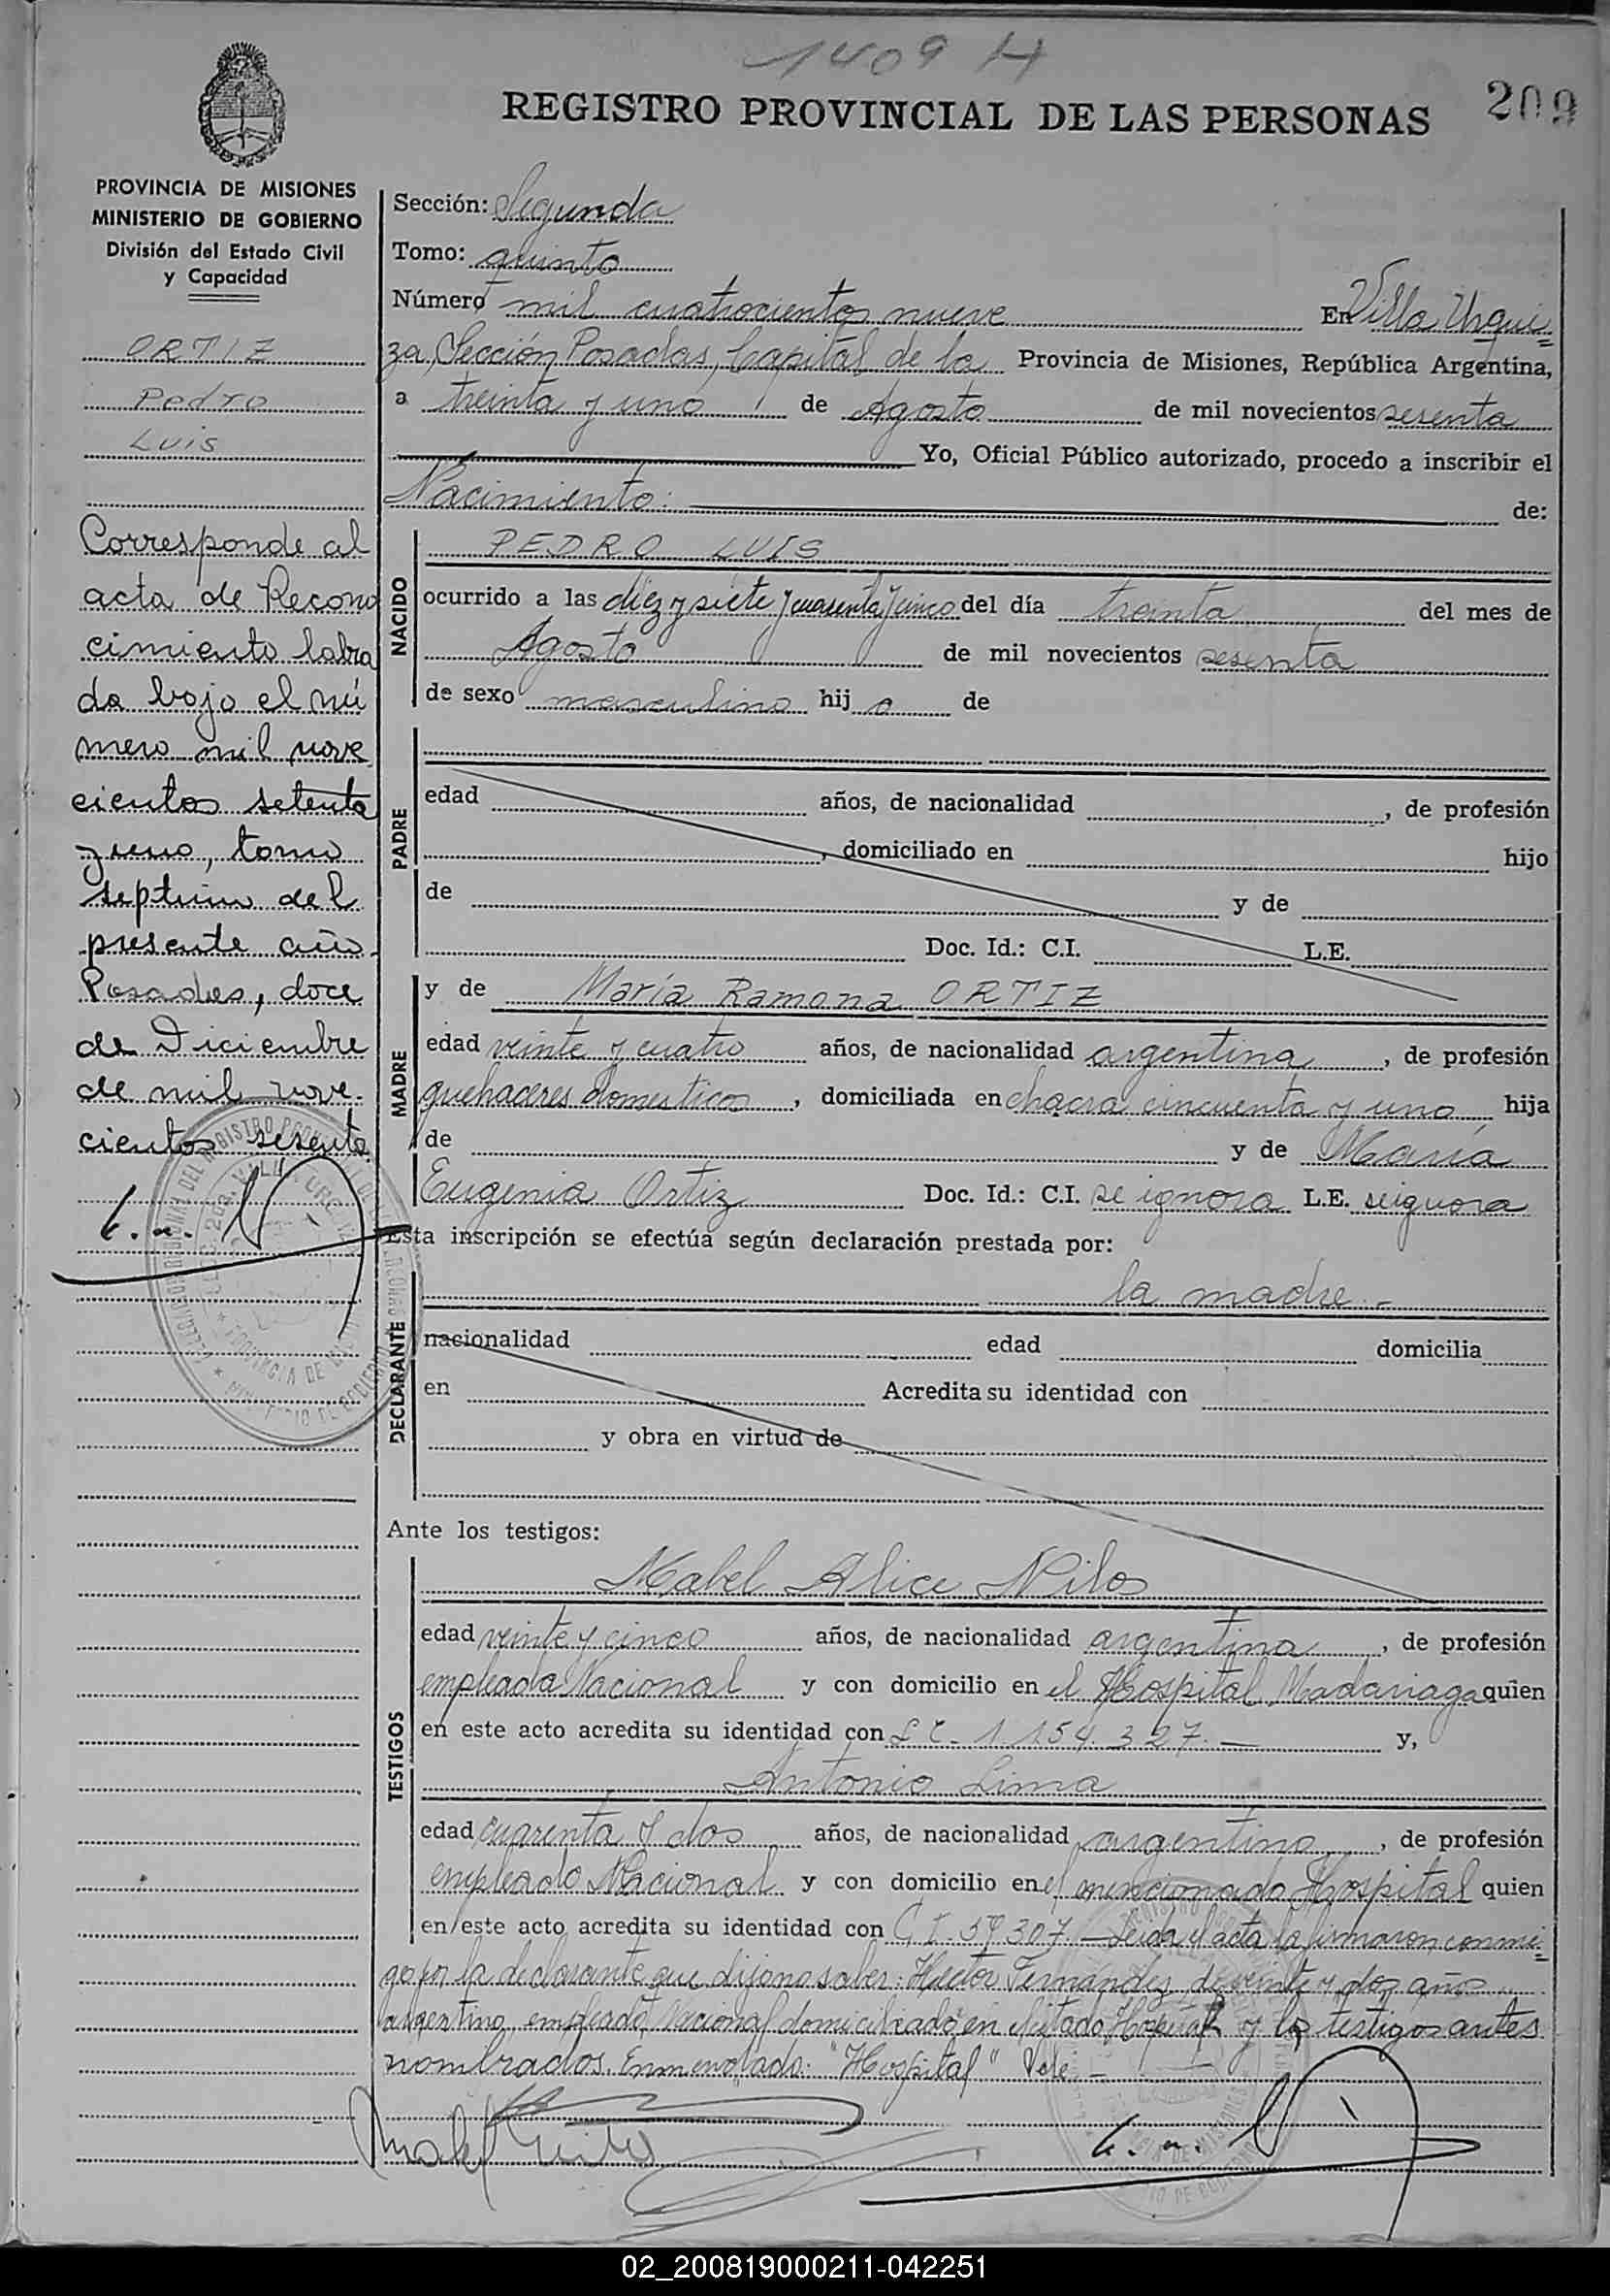 1409 H
REGISTRO PROVINCIAL DE LAS PERSONAS
209
PROVINCIA DE MISIONES
MINISTERIO DE GOBIERNO
División del Estado Civil
y Capacidad
ORTIZ
Pedro
Luis
Corresponde al
acta de Recono
cimiento labra
da bajo el nú
mero mil nove
cientos setenta
y uno, tomo
septimo del
presente año.
Posadas, doce
de Diciembre
de mil nove-
cientos sesenta
Sección: Segunda
Tomo: quinto
Número mil cuatrocientos nueve En Villa Urqui=
za, Sección Posadas, Capital de la Provincia de Misiones, República Argentina,
a treinta y uno de Agosto de mil novecientos sesenta
Yo, Oficial Público autorizado, procedo a inscribir el
Nacimiento: de:
NACIDO
PEDRO LUIS
ocurrido a las diez y siete y cuarenta y cinco del día treinta del mes de
Agosto de mil novecientos sesenta
de sexo masculino hij o de
PADRE
edad años, de nacionalidad , de profesión
, domiciliado en hijo
de y de
Doc. Id.: C.I. L.E.
MADRE
y de María Ramona ORTIZ
edad veinte y cuatro años, de nacionalidad argentina , de profesión
quehaceres domesticos , domiciliada en chacra cincuenta y uno hija
de y de María
Eugenia Ortiz Doc. Id.: C.I. se ignora L.E. se ignora
Esta inscripción se efectúa según declaración prestada por:
la madre.-
DECLARANTE
nacionalidad edad domicilia
en Acredita su identidad con
y obra en virtud de
Ante los testigos:
TESTIGOS
Mabel Alice Nilos
edad veinte y cinco años, de nacionalidad argentina , de profesión
empleada Nacional y con domicilio en el Hospital Madariaga quien
en este acto acredita su identidad con L C - 1.154.327.— y,
Antonio Lima
edad cuarenta y dos años, de nacionalidad argentino , de profesión
empleado Nacional y con domicilio en el mencionado Hospital quien
en este acto acredita su identidad con C.I. 59307.—Leida el acta la firmaron conmi=
go por la declarante que dijo no saber: Hector Fernandez, de veinte y dos años
argentino, empleado Nacional domiciliado en el citado Hospital y los testigos antes
nombrados. Enmendado: "Hospital" Vale.-
02_200819000211-042251